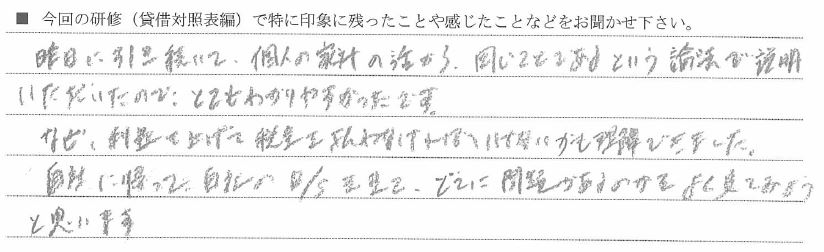 ■ 今回の研修（貸借対照表編）で特に印象に残ったことや感じたことなどをお聞かせ下さい。
昨日に引き続いて、個人の家計の話から、同じことであるという論法で説明
いただいたので、とてもわかりやすかったです。
なぜ、利益を上げて税金を払わなければいけないかも理解できました。
自社に帰って、自社のB/Sを見て、どこに問題があるのかをよく見てみよう
と思います